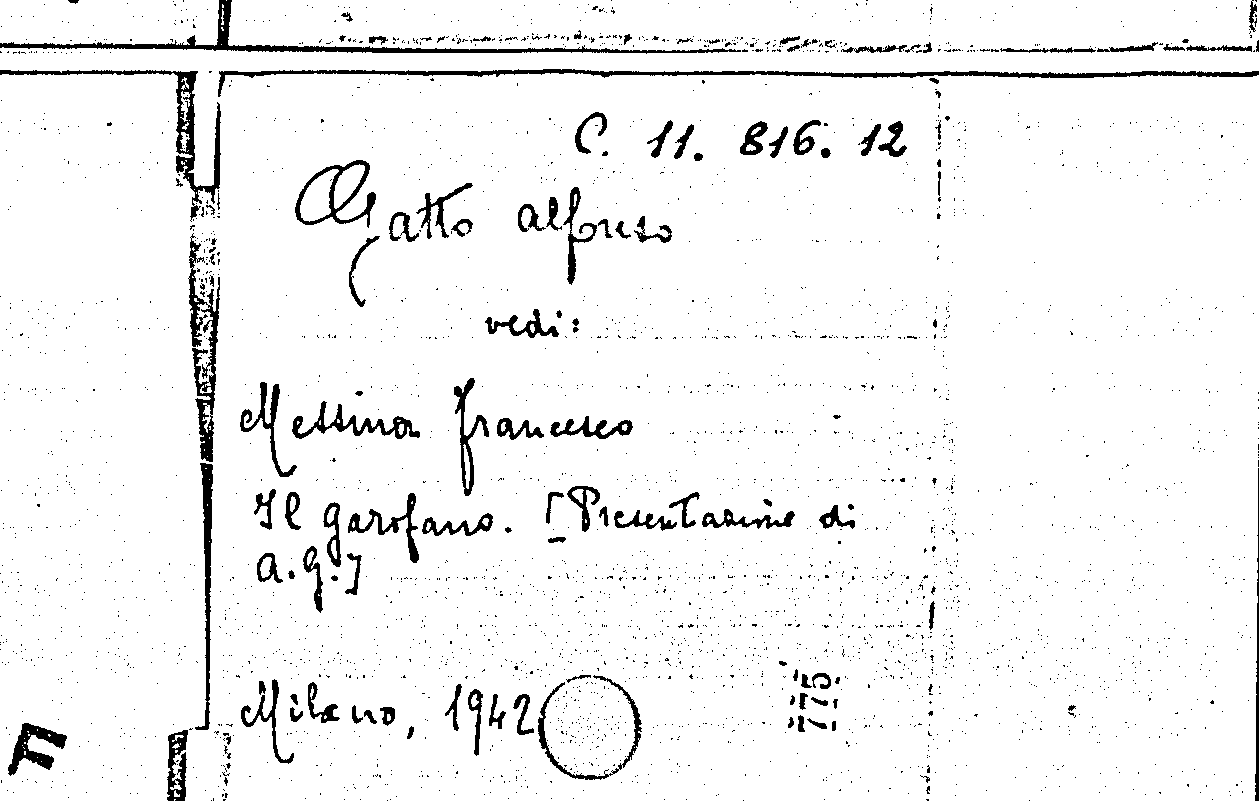 C. 11. 816. 12
Gatto Alfonso
vedi:
Messina Francesco
Il garofano. [Presentazione di
A.G.]
Milano, 1942
775
F